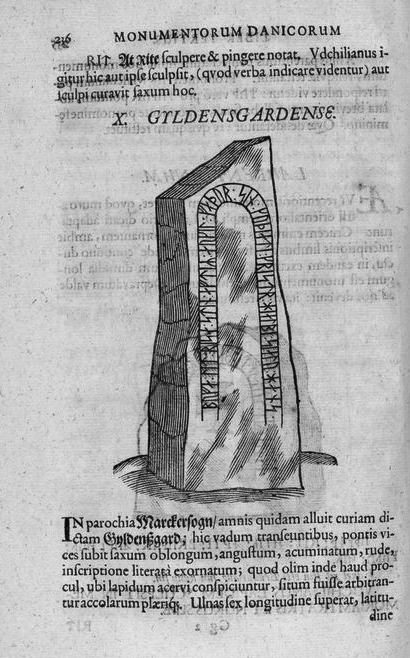 236 MONUMENTORUM DANICORUM
RIT. At rite sculpere & pingere notat. Vdchilianus i-
gitur hic aut ipse sculpsit, (qvod verba indicare videntur) aut
sculpi curavit saxum hoc.
X. GYLDENSGARDENSE.
IN parochia Marckersogn/ amnis quidam alluit curiam di-
ctam Gyldensgard; hic vadum transeuntibus, pontis vi-
ces subit saxum oblongum, angustum, acuminatum, rude,
inscriptione literata exornatum; quod olim inde haud pro-
cul, ubi lapidum acervi conspiciuntur, situm fuisse arbitran-
tur accolarum plæriq;. Ulnas sex longitudine superat, latitu-
dine